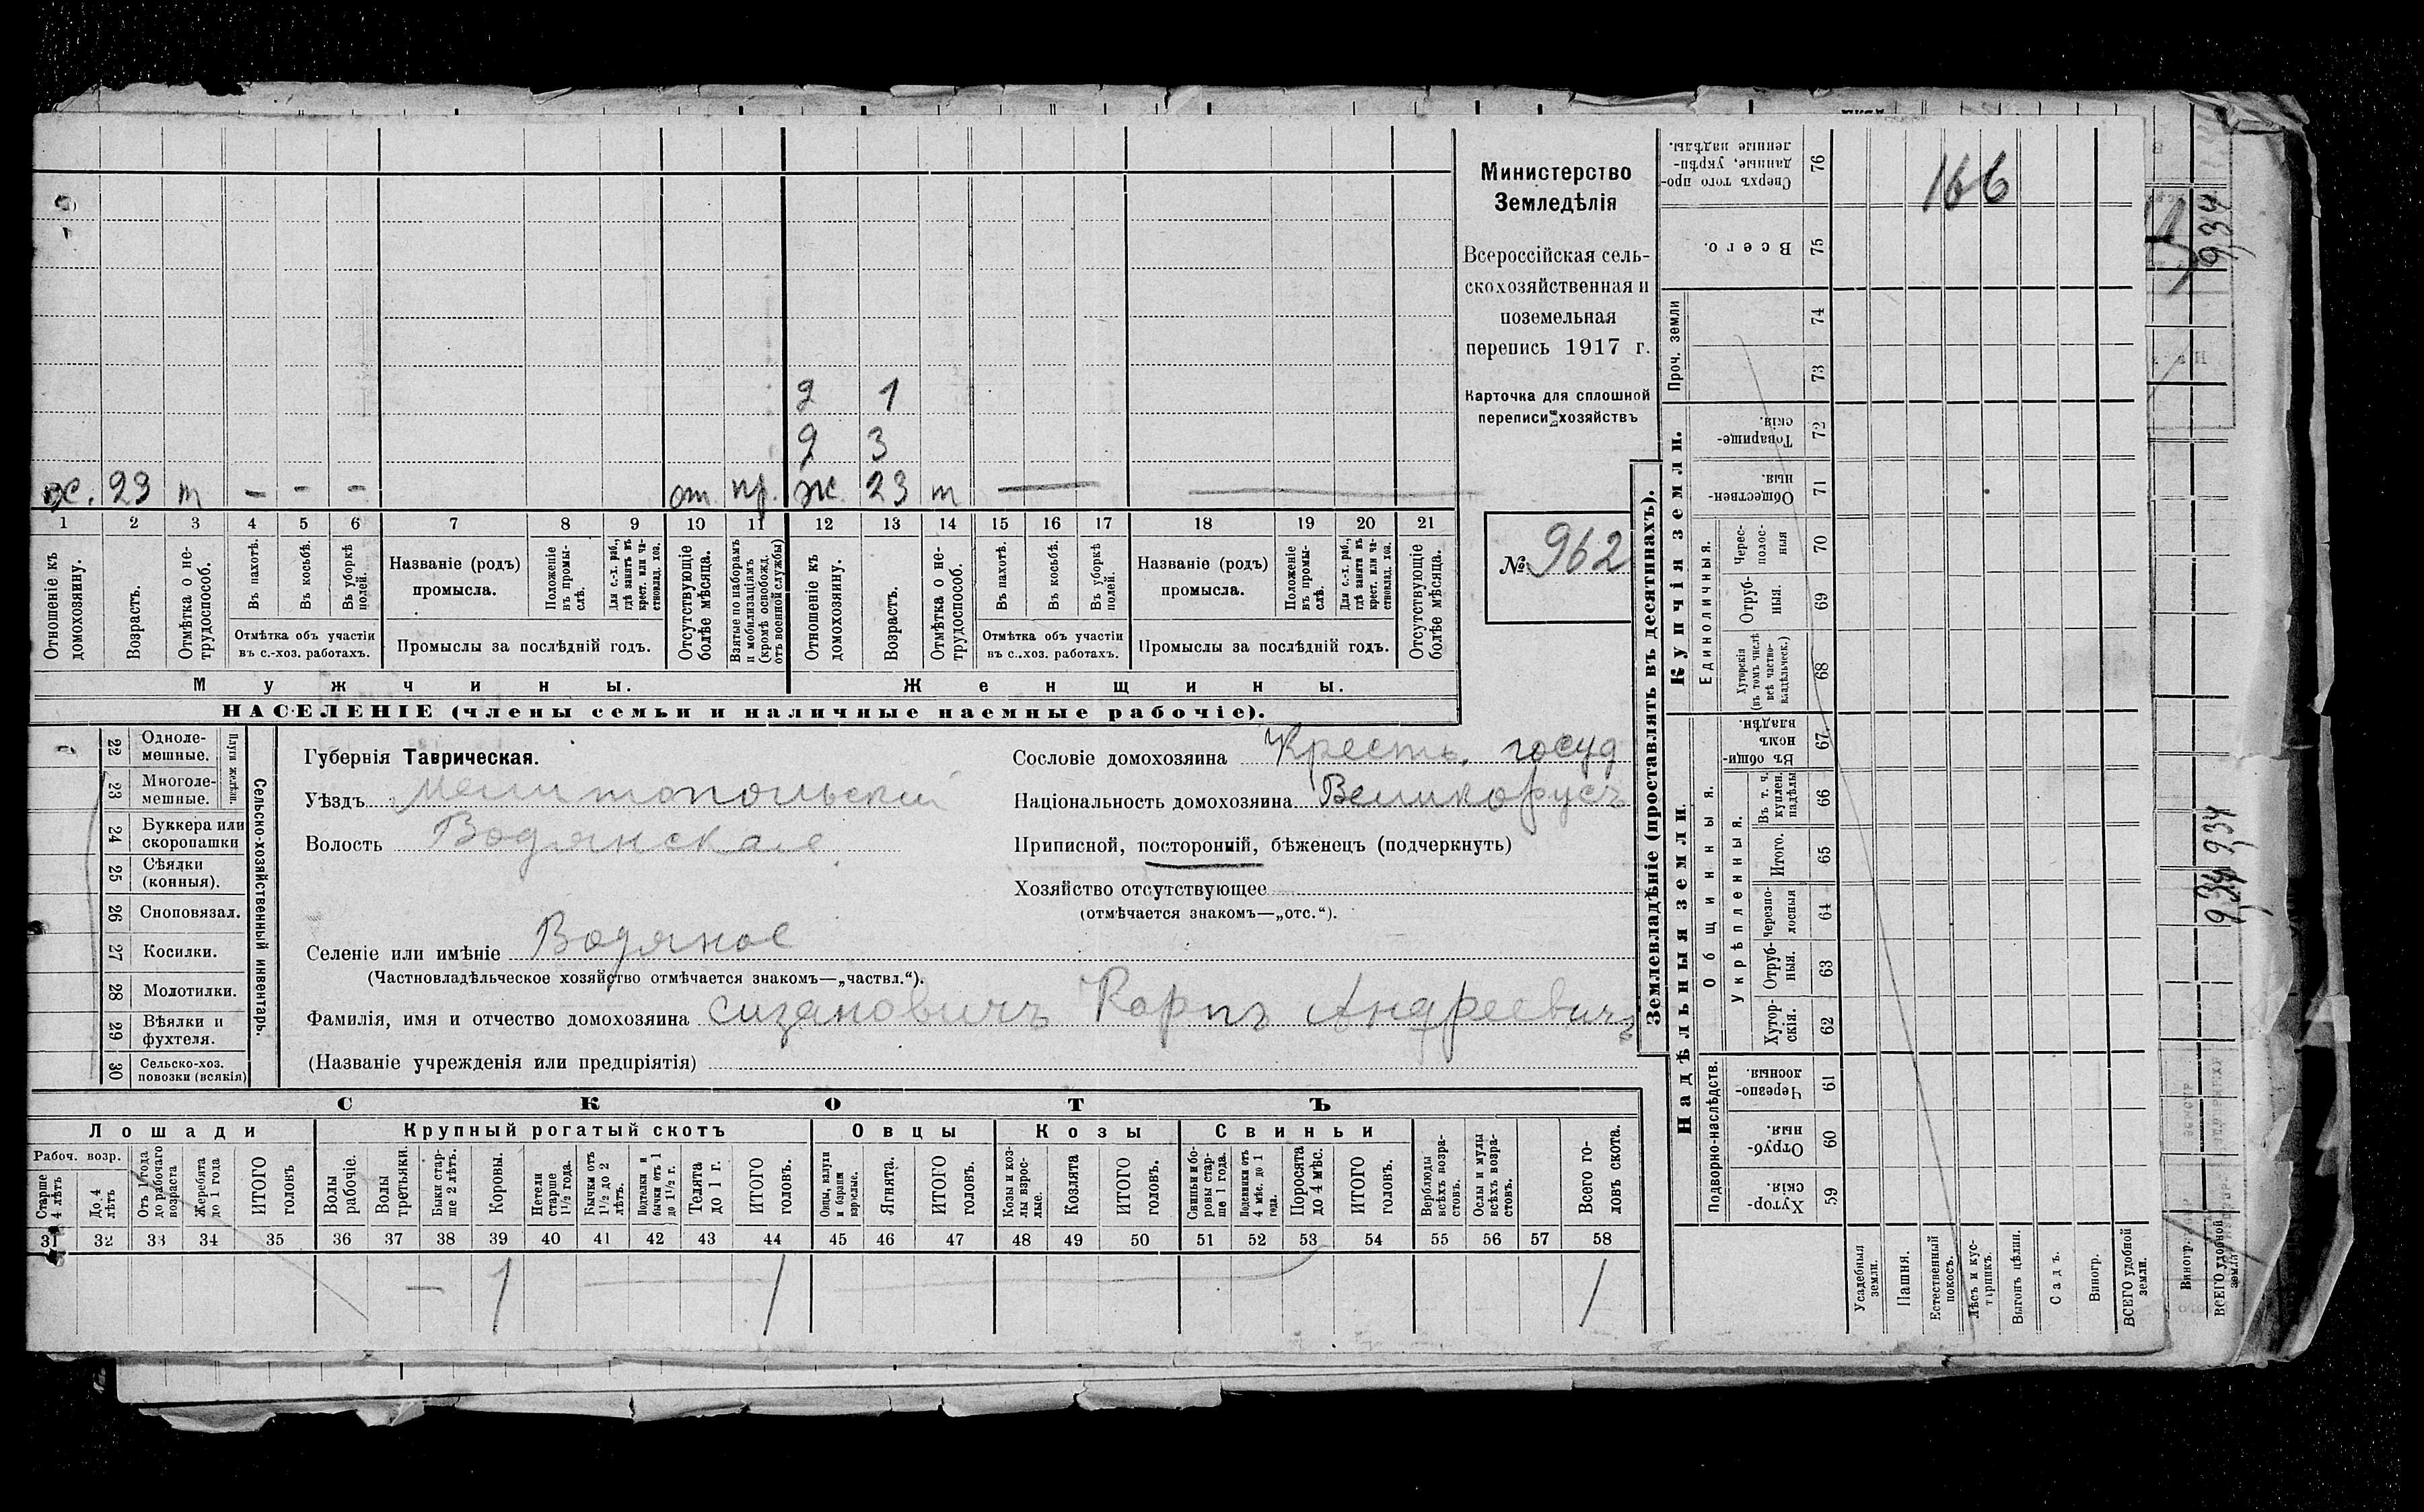 Министерство
Земледѣлія
Всероссійская сель-
скохозяйственная и
поземельная
перепись 1917 г.
Карточка для сплошной
переписи хозяйствъ
№ 962
166
2 1
2 3
х. 23 т - - - от. пр. ж. 23 т
1 2 3 4 5 6 7 8 9 10 11 12 13 14 15 16 17 18 19 20 21
Отношеніе къ домохозяину.
Возрастъ.
Отмѣтка о не-трудоспособ.
Въ пахотѣ.
Въ косьбѣ.
Въ уборкѣ полей.
Отмѣтка объ участіи
въ с.-хоз. работахъ.
Названіе (родъ)
промысла.
Положеніе въ промы-слѣ.
Для с.-х. раб., гдѣ занятъ въ крест. или ча-стновлад. хоз.
Промыслы за послѣдній годъ.
Отсутствующіе болѣе мѣсяца.
Взятые по наборамъ и мобилизаціямъ (кромѣ освобожд. отъ военной службы)
Отношеніе къ домохозяину.
Возрастъ.
Отмѣтка о не-трудоспособ.
Въ пахотѣ.
Въ косьбѣ.
Въ уборкѣ полей.
Отмѣтка объ участіи
въ с.-хоз. работахъ.
Названіе (родъ)
промысла.
Положеніе въ промы-слѣ.
Для с.-х. раб., гдѣ заняты въ крест. или ча-стновлад. хоз.
Промыслы за послѣдній годъ.
Отсутствующіе болѣе мѣсяца.
Мужчины. Женщины.
НАСЕЛЕНІЕ (члены семьи и наличные наемные рабочіе).
Сельско-хозяйственный инвентарь.
Плуги желѣзн.
22 Одноле-мешные.
23 Многоле-мешные.
24 Буккера или скоропашки
25 Сѣялки (конныя).
26 Сноповязал.
27 Косилки.
28 Молотилки.
29 Вѣялки и фухтеля.
30 Сельско-хоз. повозки (всякія)
Губернія Таврическая.
Уѣздъ Мелитопольскій
Волость Водянская
Селеніе или имѣніе Водяное
(Частновладѣльческое хозяйство отмѣчается знакомъ—„частвл.“).
Фамилія, имя и отчество домохозяина Сизановичъ Карпъ Андреевичъ
(Названіе учрежденія или предпріятія)
Сословіе домохозяина Крестъ. госуд
Національность домохозяина Великорусъ
Приписной, посторонній, бѣженецъ (подчеркнуть)
Хозяйство отсутствующее
(отмѣчается знакомъ—„отс.“).
СКОТЪ
Лошади Крупный рогатый скотъ Овцы Козы Свиньи
Рабоч. возр.
Старше 4 лѣтъ
До 4 лѣтъ
Отъ 1 года до рабочаго возраста
Жеребята до 1 года
ИТОГО головъ
Волы рабочіе.
Волы третьяки.
Быки стар-ше 2 лѣтъ.
Коровы.
Нетели старше 1½ года.
Бычки отъ 1½ до 2 лѣтъ.
Подтелки и бычки отъ 1 до 1½ г.
Телята до 1 г.
ИТОГО головъ.
Овцы, валухи и бараны взрослые.
Ягнята.
ИТОГО головъ.
Козы и коз-лы взрос-лые.
Козлята
ИТОГО головъ.
Свиньи и бо-ровы стар-ше 1 года.
Подсвинки отъ 4 мѣс. до 1 года.
Поросята до 4 мѣс.
ИТОГО головъ.
Верблюды всѣхъ возра-стовъ.
Ослы и мулы всѣхъ возра-стовъ.
Всего го-ловъ скота.
31 32 33 34 35 36 37 38 39 40 41 42 43 44 45 46 47 48 49 50 51 52 53 54 55 56 57 58
— 1 1 1
Землевладѣніе (проставлять въ десятинахъ).
Надѣльныя земли. Купчія земли. Проч. земли
Подворно-наслѣдств.
Общинныя.
Укрѣпленныя.
Единоличныя.
59 Хутор-скія
60 Отруб-ныя.
61 Черезпо-лосныя.
62 Хутор-скія.
63 Отруб-ныя.
64 Черезпо-лосныя
65 Итого.
66 Въ т. ч. куплен. надѣлы
67 Въ общи-номъ владѣн.
68 Хуторскія (въ томъ числѣ всѣ частно-владѣльческ.)
69 Отруб-ныя.
70 Черес-полос-ныя
71 Обществен-ныя.
72 Товарище-скія.
73
74
75 Всего.
76 Сверхъ того про-данные, укрѣп-ленные надѣлы.
Усадебныя земли.
Пашня.
Естественный покосъ.
Лѣсъ и кус-тарникъ.
Выгонъ цѣлин.
Садъ.
Виногр.
ВСЕГО удобной земли.
934
934
934
Виногр.
ВСЕГО удобной земли